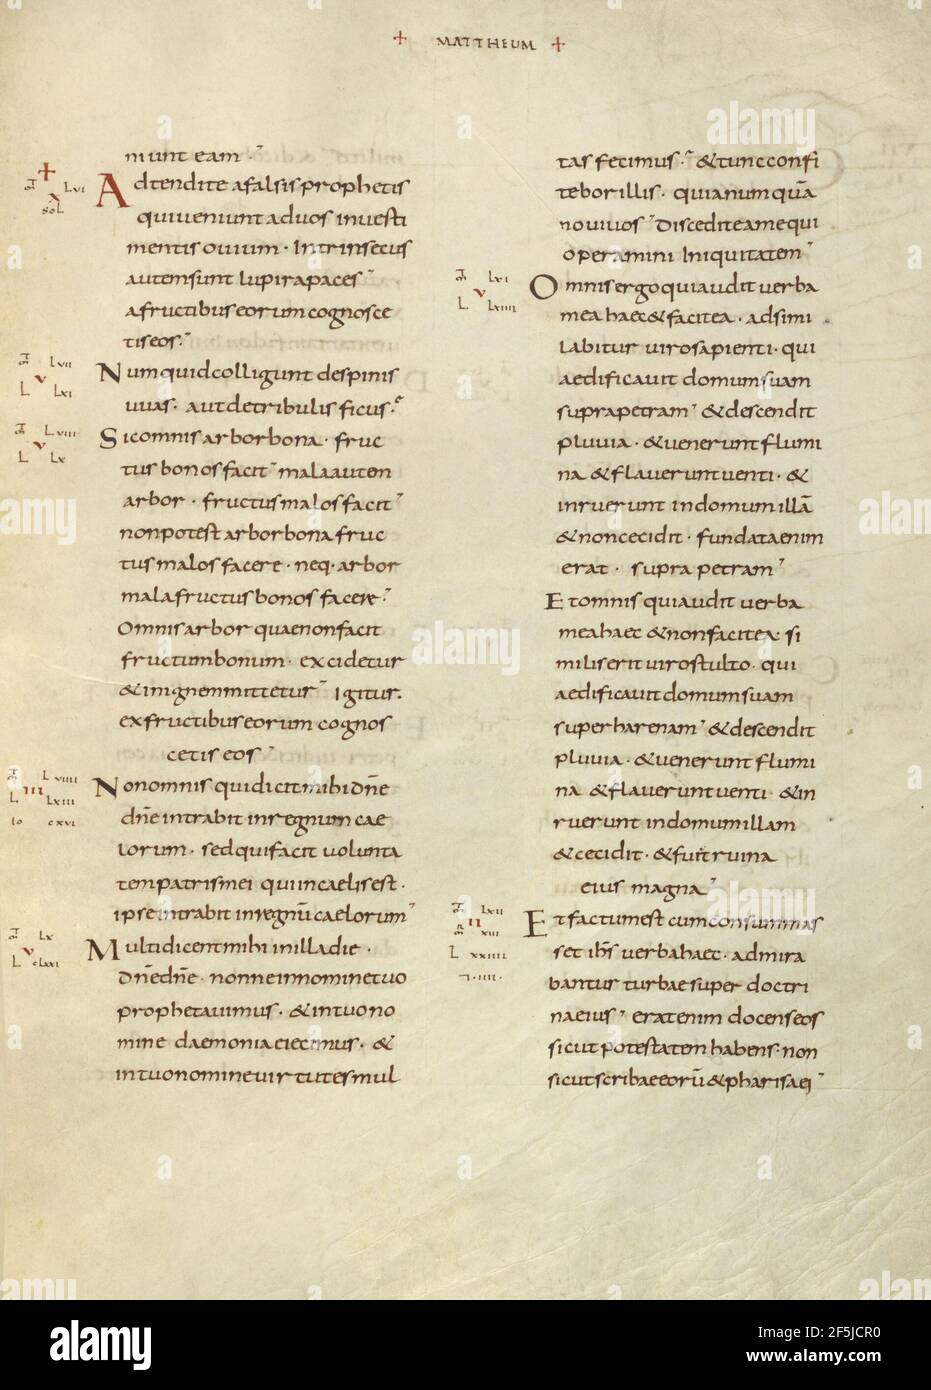 + MATTHEUM +
niunt eam
Adtendite afalsis prophetis
quiveniunt aduos investi
mentis ovium · Intrinsecus
autem sunt lupi rapaces
afructibus eorum cognosce
tis eos
Numquid colligunt despinis
uvas · aut detribulis ficus
Sic omnis arbor bona · fruc
tus bonos facit mala autem
arbor · fructus malos facit
non potest arbor bona fruc
tus malos facere · neq· arbor
mala fructus bonos facere
Omnis arbor quae non facit
fructum bonum · excidetur
& inignem mittetur Igitur
ex fructibus eorum cognos
cetis eos
Non omnis qui dicit mihi dn̄e
dn̄e intrabit inregnum cae
lorum · sed qui facit volunta
tem patris mei qui incaelis est ·
ipse intrabit inregnū caelorum
Multi dicent mihi inilla die ·
dn̄e dn̄e · nonne innomine tuo
prophetavimus · & intuo no
mine daemonia eiecimus · &
intuo nomine virtutes mul
tas fecimus · & tunc confi
tebor illis · quia numquā
novi vos Discedite ame qui
operamini Iniquitatem
Omnis ergo qui audit verba
mea haec & facit ea · adsimi
labitur viro sapienti · qui
aedificavit domum suam
supra petram & descendit
pluvia · & venerunt flumi
na & flaverunt venti · &
inruerunt indomum illā
& non cecidit · fundata enim
erat · supra petram
Et omnis qui audit verba
mea haec & non facit ea si
milis erit viro stulto · qui
aedificavit domum suam
super harenam & descendit
pluvia · & venerunt flumi
na & flaverunt venti · & in
ruerunt indomum illam
& cecidit · & fuit ruina
eius magna
Et factum est cum consummas
set ih̄s verba haec · admira
bantur turbae super doctri
na eius erat enim docens eos
sicut potestatem habens · non
sicut scribae eorū & pharisaei
LVI
sol
LVII
L LXI
LVIII
L LX
LVIIII
IIII
L LXIII
Io CXVI
LX
V
L CLXXI
LXI
V
L LXIIII
LXII
II
XIII
L XXIIII
alamy
Image ID: 2F5JCR0
www.alamy.com